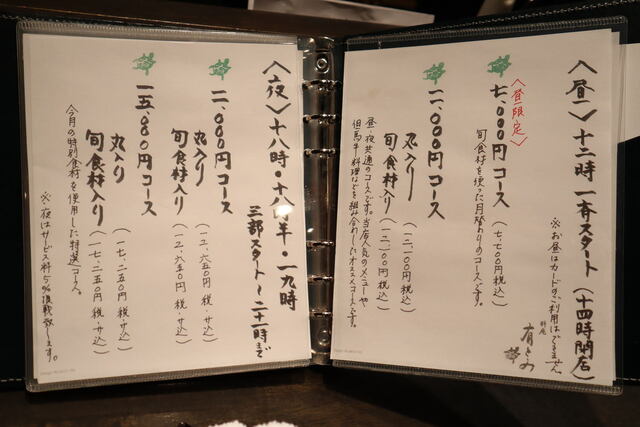 〈昼〉十二時一斉スタート(十四時閉店)
※お昼はカードのご利用はできません。
料庵
有とみ
〈昼限定〉
七、000円コース
(七、七00円税込)
旬食材を使った月替わりのコースです。
一一、000円コース
丸入り
(一二、一00円税込)
旬食材入り
(一二、一00円税込)
昼・夜共通のコースです。当店人気のメニューや
但馬牛料理などを組み合わしたオススメコースです。
〈夜〉十八時・十八時半・一九時
三部スタート〜二十一時まで
一一、000円コース
丸入り
(一二、六五0円税・サ込)
旬食材入り
(一二、六五0円税・サ込)
一五、000円コース
丸入り
(一七、二五0円税・サ込)
旬食材入り
(一七、二五0円税・サ込)
今月の特別食材を使用した特選コース。
※夜はサービス料5%頂戴致します。